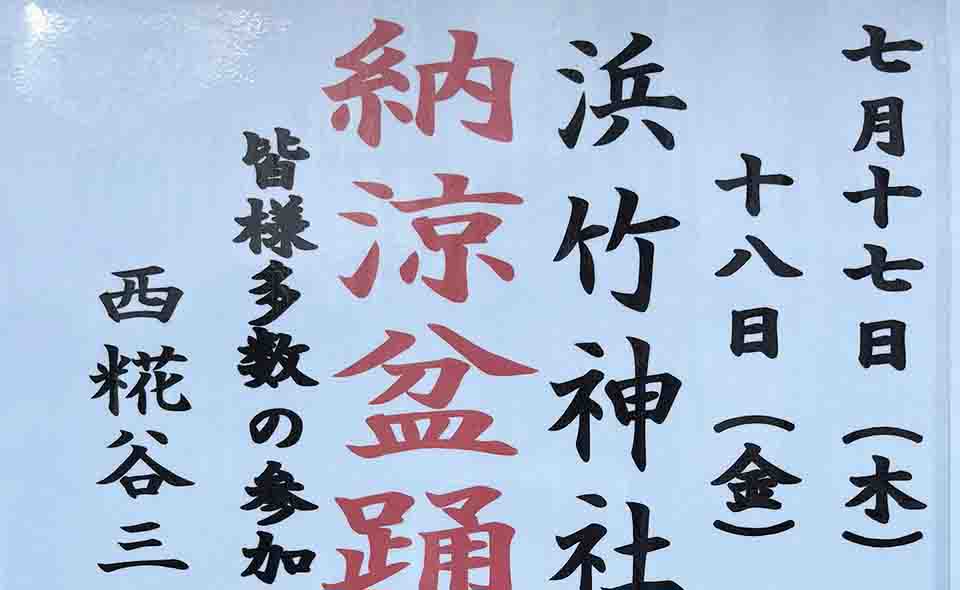 七月十七日（木）
十八日（金）
浜竹神社
納涼盆踊
皆様多数の参加
西糀谷三